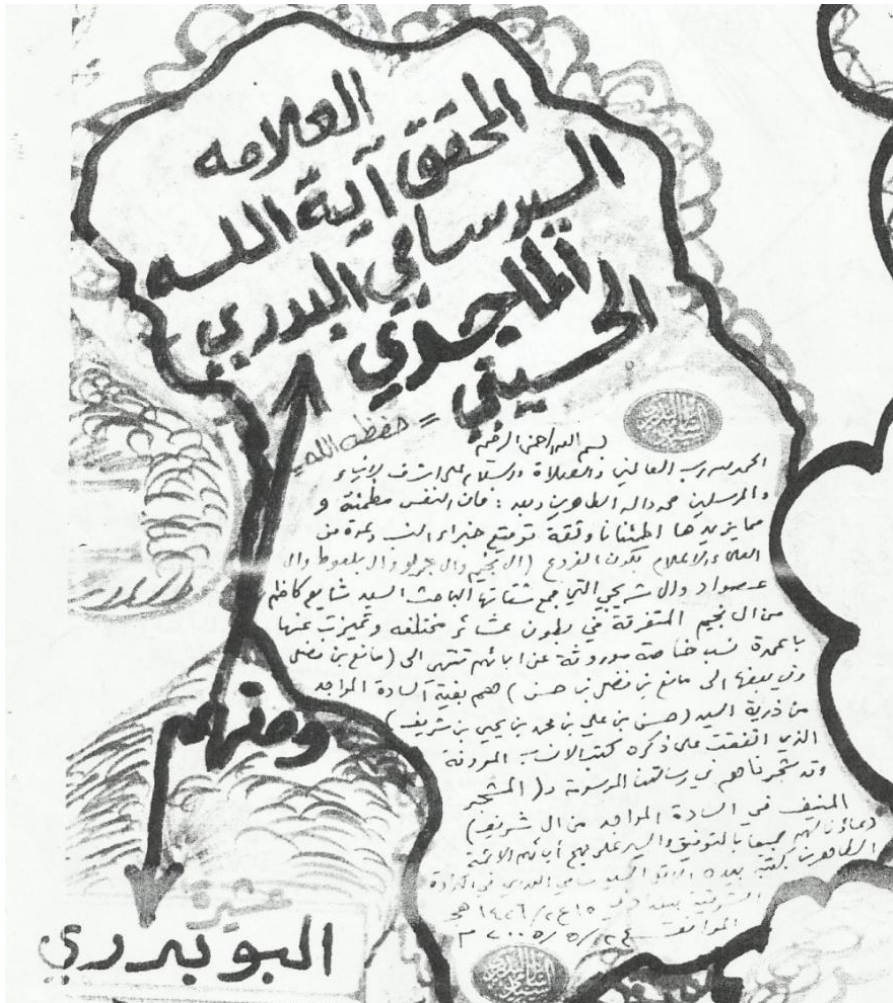 العلامه
المحقق آية الله
السيد سامي البدري
الماجدي
الحسيني
= حفظه الله =
بسم الله الرحمن الرحيم
الحمد لله رب العالمين والصلاة والسلام على اشرف الانبياء
والمرسلين محمد واله الطاهرين وبعد : فان النفس مطمئنة و
مما يزيدها اطمئنانا وثقة توقيع خبراء النسب وثمرة من
العلماء الاعلام بكون الفروع (ال نجيم وال جريو وال بلعوط وال
عصواد وال شريجي التي جمع شتاتها الباحث السيد شايع كاظم
من ال نجيم المتفرقة في بطون عشائر مختلفه وتميزت عنها
باعمدة نسب خاصة موروثة عن ابائهم تنتهي الى (مانع بن فضل
وفي بعضها الى مانع بن فضل بن حسن) هم بقية السادة المواجد
من ذرية السيد (حسن بن علي بن محمد بن يحيى بن شريف)
الذي اتفقت على ذكره كتب الانساب المعروفة
وقد شجرناهم في رسالتنا الموسومة د( المشجر
المنيف في السادة المواجد من ال شريف)
دعاؤنا لهم جميعا بالتوفيق والسير على نهج أبائهم الائمة
الطاهرين كتبه بيده السيد سامي البدري في الكرادة
الشرقية بغداد في ١٥/ع٢/١٤٢٦ هج
الموافق ٢٤/٥/٢٠٠٥ م
ومنهم
عشيرة
البو بدري